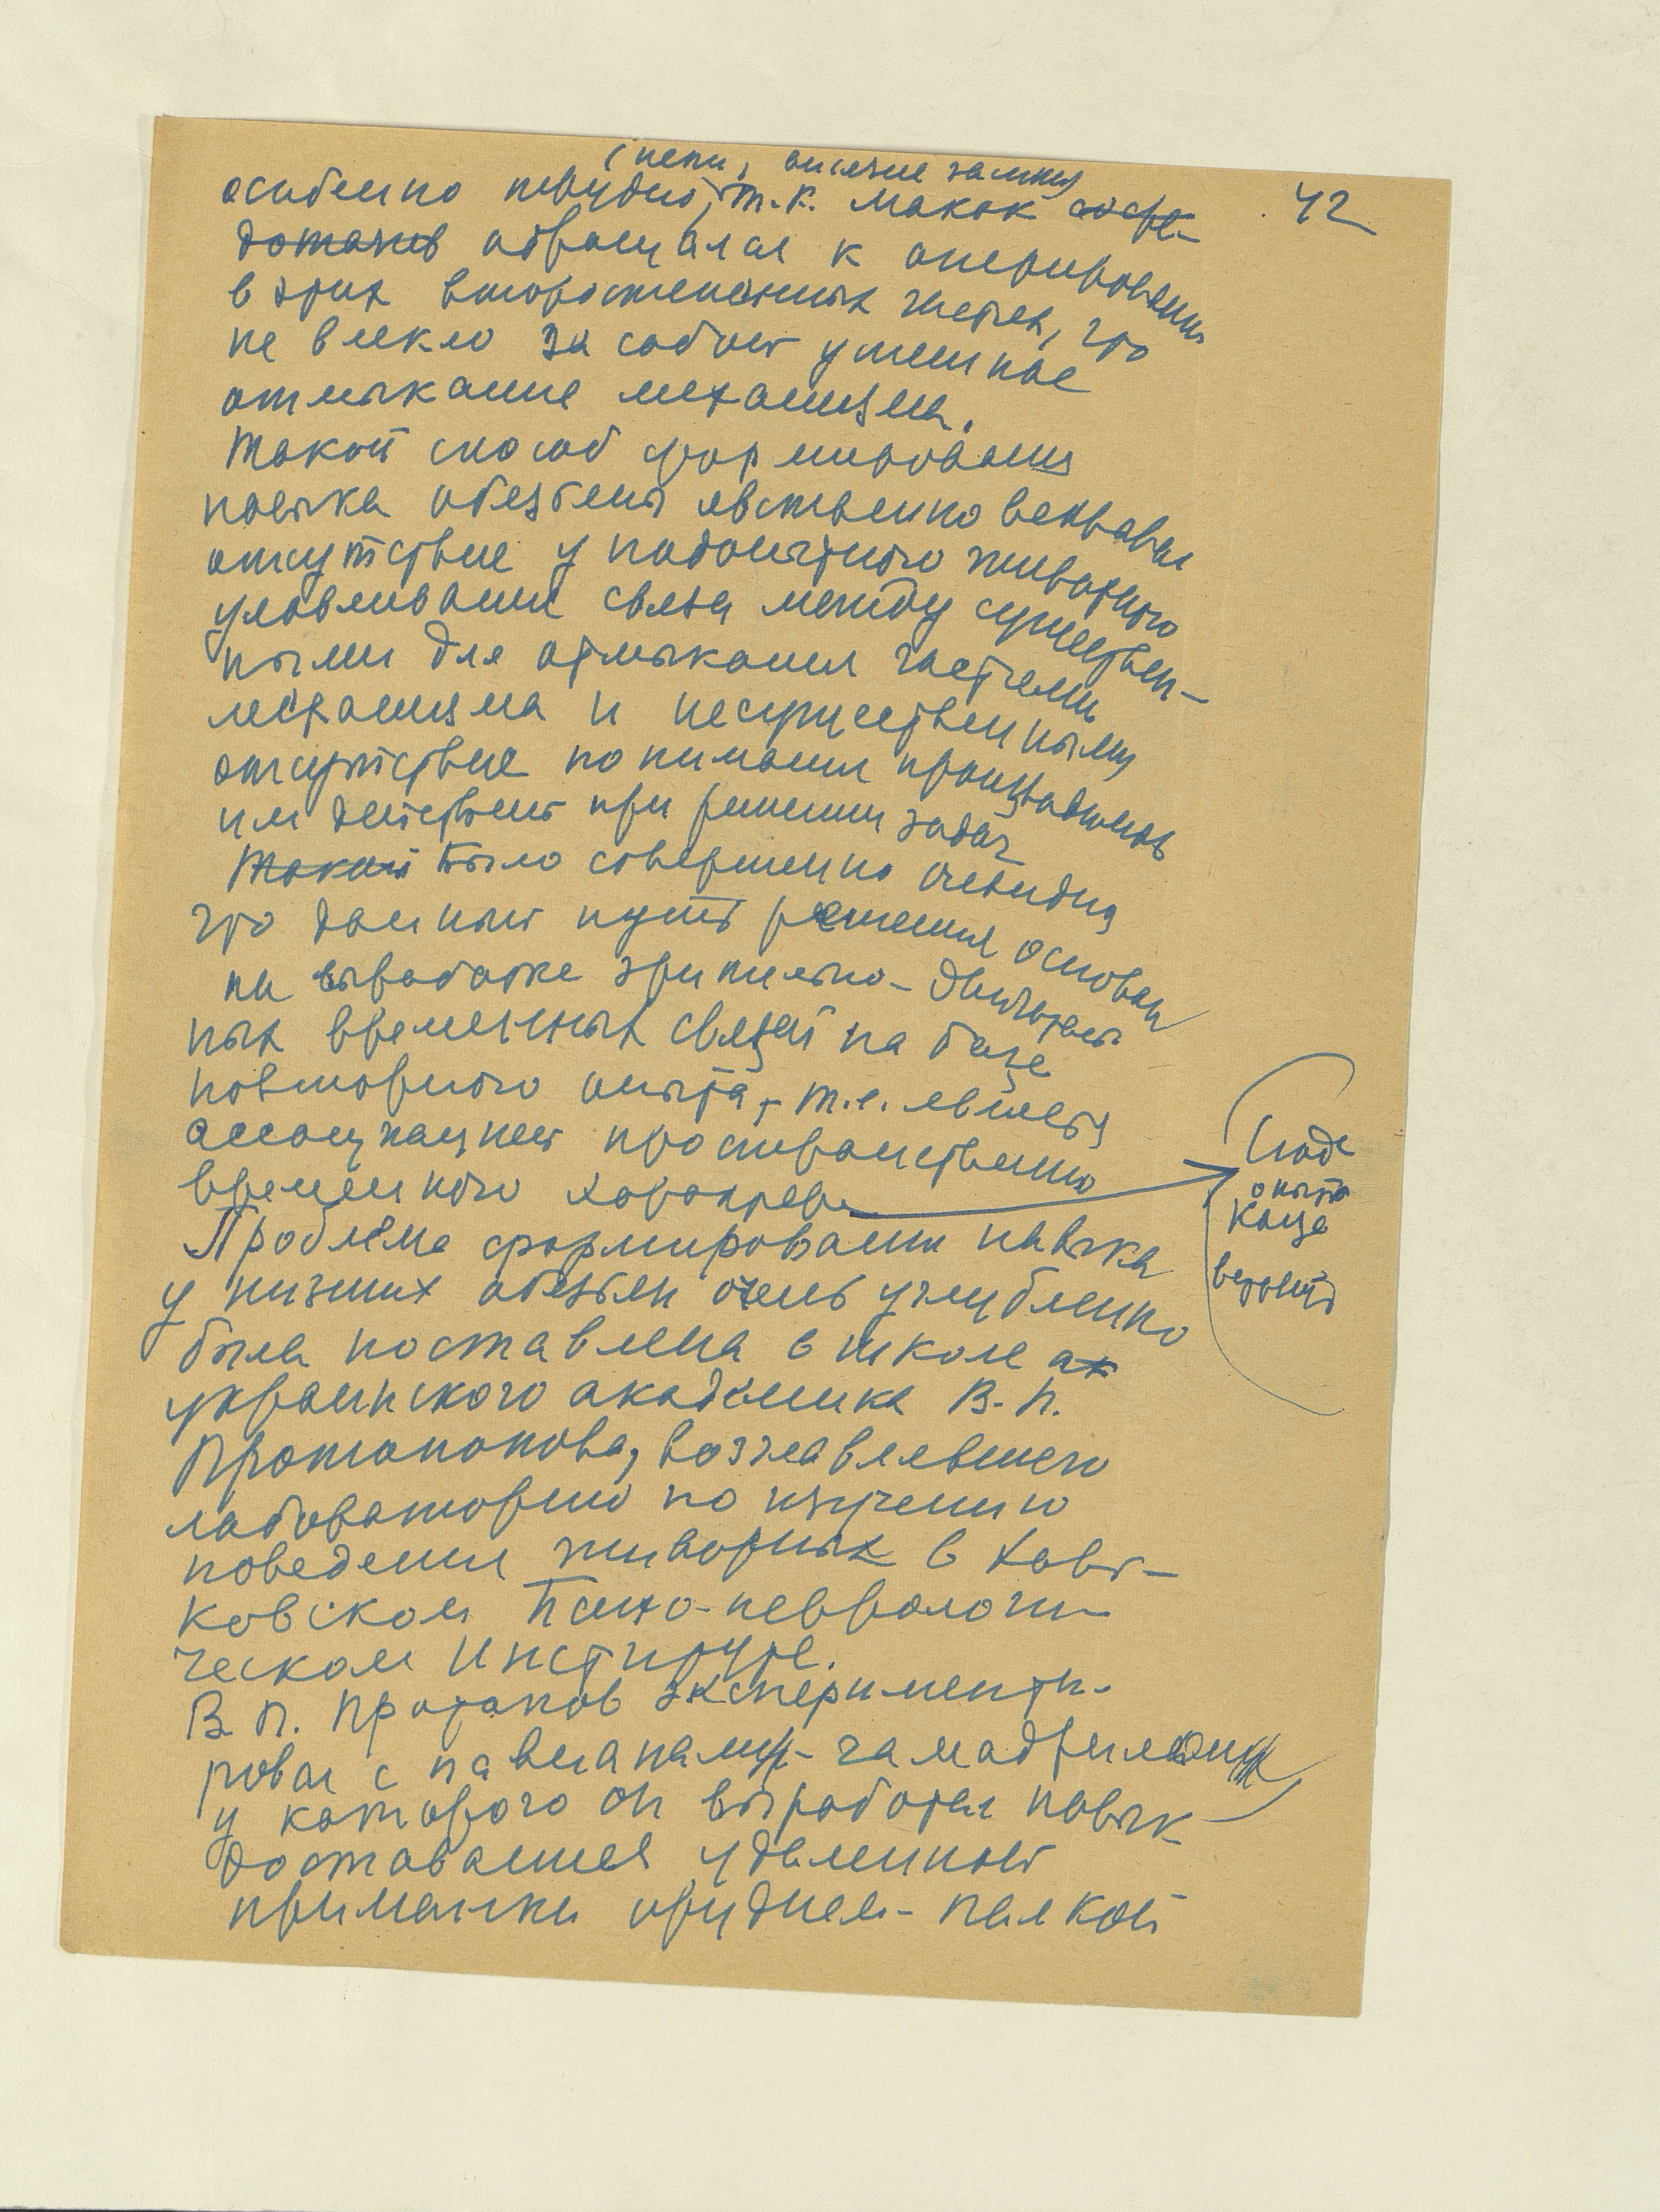 (цепи, висячие замки)
42
особенно трудно, т.к. макак сосре-
доточив обращался к оперированию
в этих второстепенных частях, что
не влекло за собой успешное
отмыкание механизма.
Такой способ формирования
навыка обезьяны явственно вскрывал
отсутствие у подопытного животного
улавливания связи между существен-
ными для отмыкания частями
механизма и несущественными
отсутствие понимания производимых
им действий при решении задач
Такой Было совершенно очевидно
что данный путь решения основан
на выработке зрительно-двигатель
ных временных связей на базе
повторного опыта, т.е. является
ассоциацией пространственно
временного характера
Сюда
опыты
Каца
вставить
Проблема формирования навыка
у низших обезьян очень углубленно
была поставлена в школе ак
украинского академика В.П.
Протопопова, возглавлявшего
лабораторию по изучению
поведения животных в Харь-
ковском Психо-невроло­ги-
ческом Институте.
В.П. Протопов эксперименти-
ровал с павианами-гамадрилами
у которого он выработал навык
доставания удаленной
приманки орудием-палкой